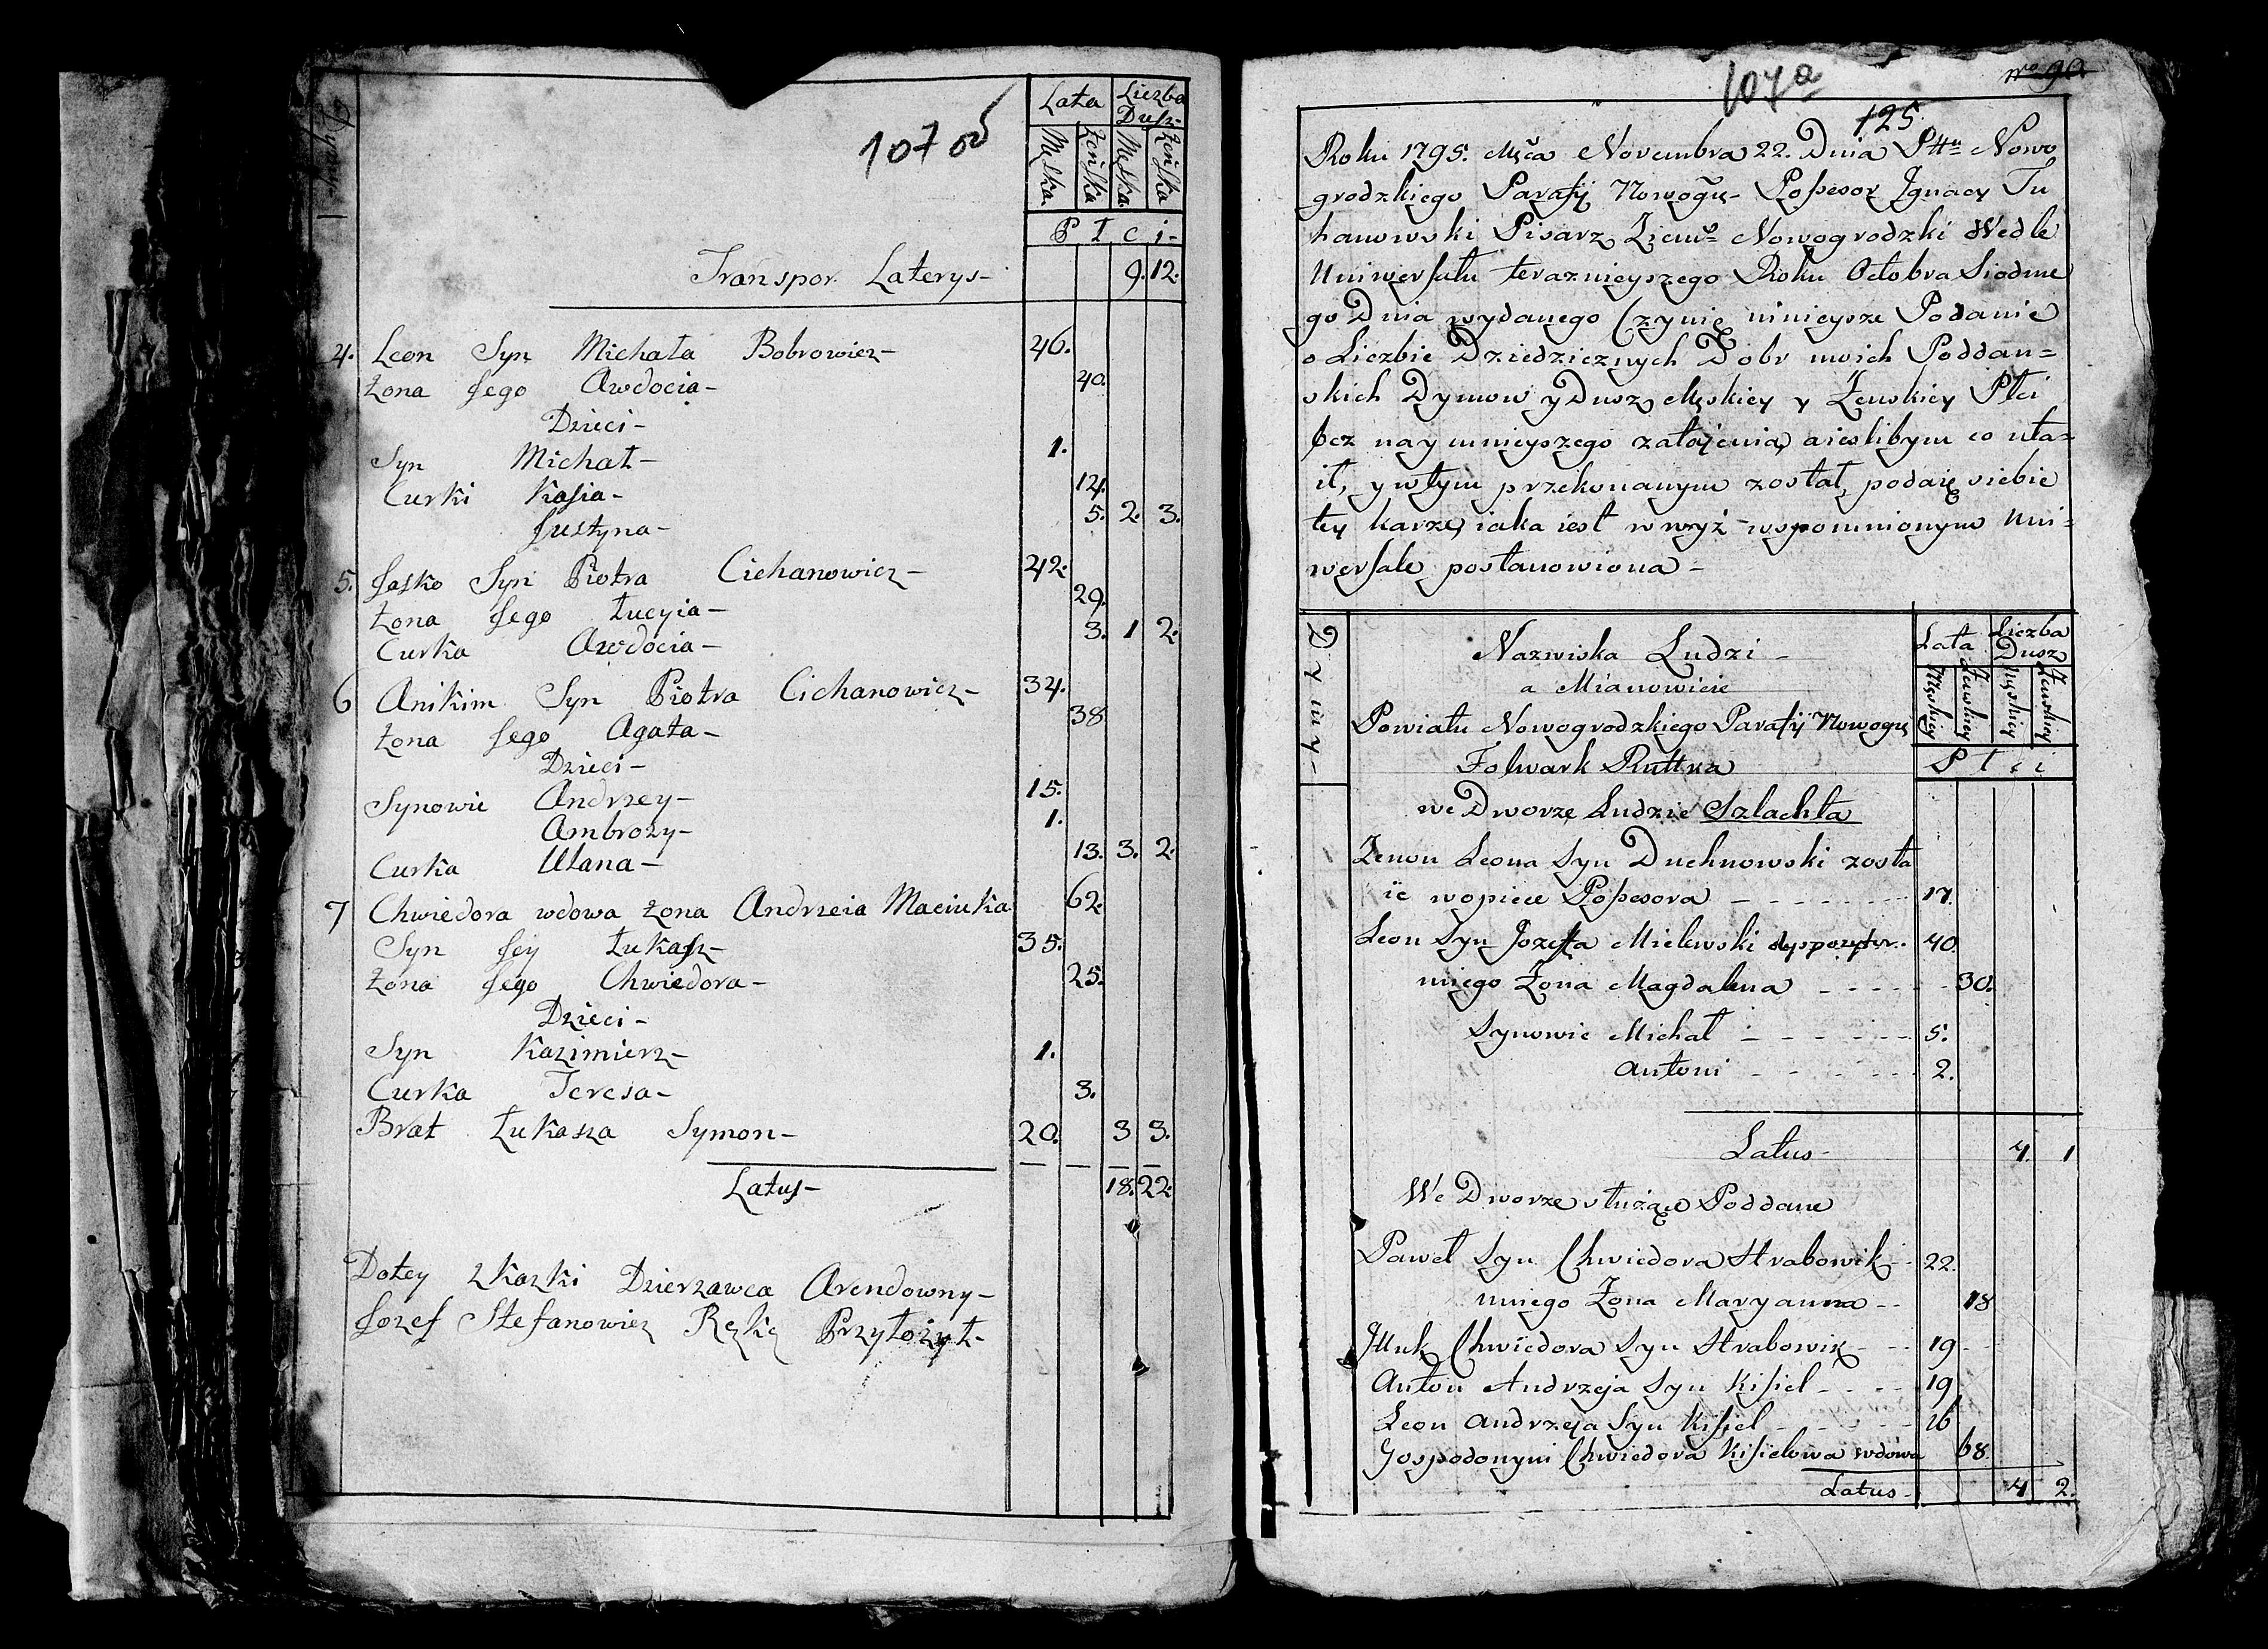 107 об
Dymy
Lata Liczba Dusz
Męska Żeńska Męska Żeńska
Płci
Transpor. Laterys – 9. 12.
4. Leon Syn Michała Bobrowicz – 46.
Żona Jego Awdocia – 40.
Dzieci –
Syn Michał – 1.
Curki Kasia – 14.
Justyna – 5. 2. 3.
5. Jaśko Syn Piotra Cichanowicz – 42.
Żona Jego Łucyia – 29.
Curka Awdocia – 3. 1 2.
6 Anikim Syn Piotra Cichanowicz – 34.
Żona Jego Agata – 38
Dzieci –
Synowie Andrzey – 15.
Ambrozy – 1.
Curka Ulana – 13. 3. 2.
7 Chwiedora wdowa Żona Andrzeia Maciuka 62.
Syn Jey Łukasz – 35.
Żona Jego Chwiedora – 25.
Dzieci –
Syn Kazimierz – 1.
Curka Teresa – 3.
Brat Łukasza Symon – 20. 3 3.
Latus – 18. 22.
Dotey Skazki Dzierzawca Arendowny –
Jozef Stefanowicz Rękę Przyłożył –
107а
no 90
125
Roku 1795. Msča Novembra 22. Dnia Pttu Nowo
grodzkiego Parafij Nowogu – Possesor Ignacy Tu
hanowski Pisarz Ziems Nowogrodzki Wedle
Uniwersału teraznieyszego Roku Octobra Siodme
go Dnia wydanego Czynię ninieysze Podanie
o Liczbie Dziedzicznych Dobr moich Poddan=
skich Dymow y Dusz Męskiey y Żenskiey Płci
bez naymnieyszego zatajenia, aieslibym co uta=
ił, y wtym przekonanym został, podaię siebie
tey karze, iaka iest w wyż wspomnionym Uni=
wersale postanowiona –
Dymy –
Nazwiska Ludzi –
a Mianowicie
Lata Liczba Dusz
Męskiey Żenskiey Męskiey Żenskiey
Płci
Powiatu Nowogrodzkiego Parafij Nowogu
Folwark Ruttka
we Dworze Ludzie Szlachta
Zenon Leona Syn Duchnowski zosta
ie wopiece Possesora – 17.
Leon Syn Jozefa Mielewski dyspozytor. 40.
uniego Żona Magdalena – 30.
Synowie Michał – 5.
Antoni – 2.
Latus – 4. 1
We Dworze służące Poddane
Paweł Syn Chwiedora Hrabowik – 22.
uniego Żona Maryanna – 18
Illuk Chwiedora Syn Hrabowik – 19
Anton Andrzeja Syn Kisiel – 19
Leon Andrzeja Syn Kisiel – 16
Gospodonyni Chwiedora Kisielowa wdowa 68.
Latus – 4 2.